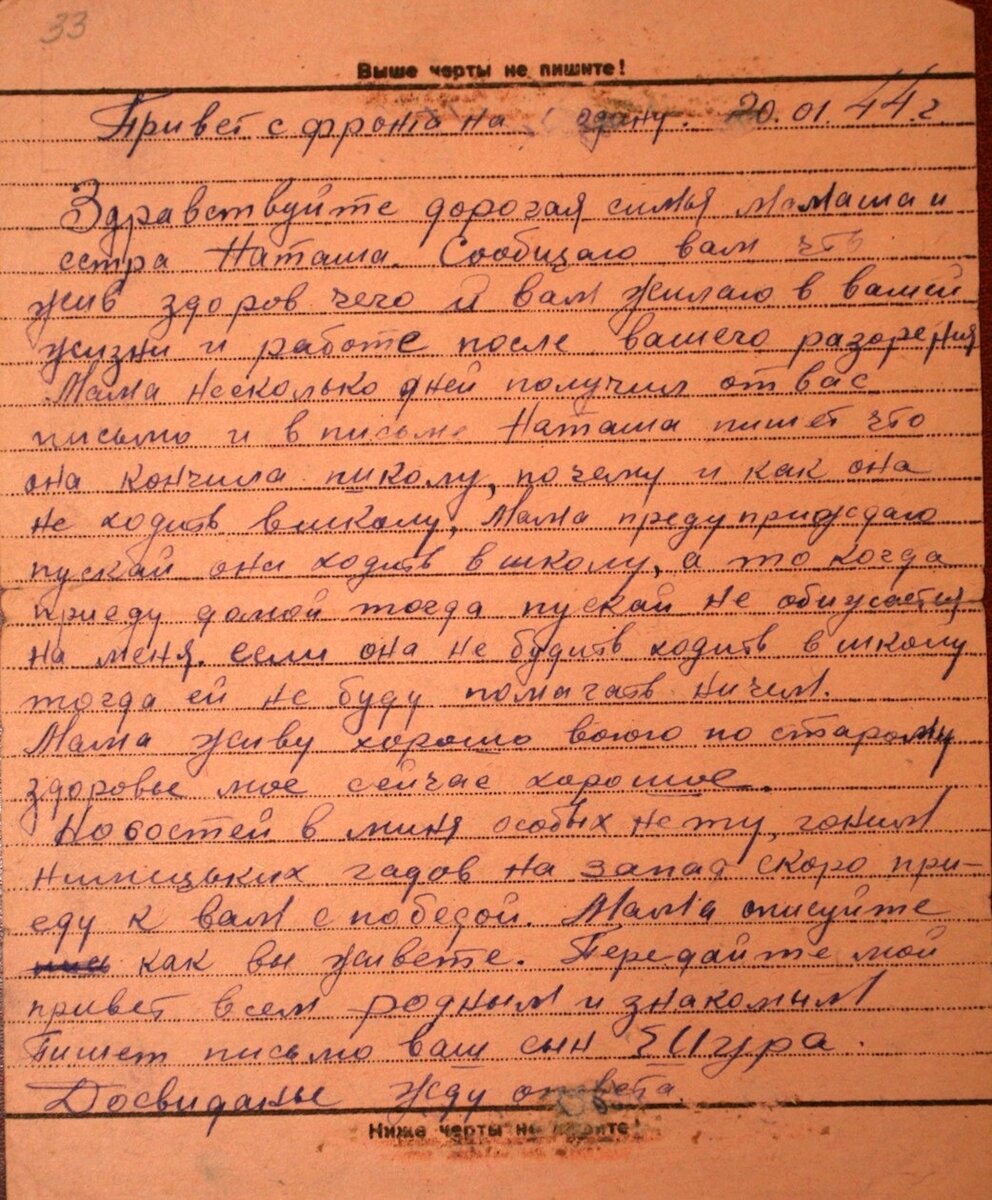 33
Выше черты не пишите!
Привет с фронта на 20.01.44 г.
Здравствуйте дорогая симья мамаша и
сстра Наташа. Сообщаю вам что
жив здоров чего й вам жилаю в вашей
жизни и работе после вашего разорения
Мама несколько дней получил от вас
письмо и в письме Наташа пишет что
она кончила школу, почему и как она
не ходить в школу, Мама предуприждаю
пускай она ходить в школу, а то когда
приеду домой тогда пускай не обижается
на меня. если она не будить ходить в школу
тогда ей не буду помагать ничем.
Мама живу хорошо воюю по старому
здоровье мое сейчас хорошое.
Новостей в миня особых нету, гоним
нимицьких гадов на запад скоро при-
еду к вам с победой. Мама описуйте
как вы живете. Передайте мой
привет всем родным и знакомым
Пишет письмо ваш сын Шура.
Досвиданье жду ответа
Ниже черты не пишите!